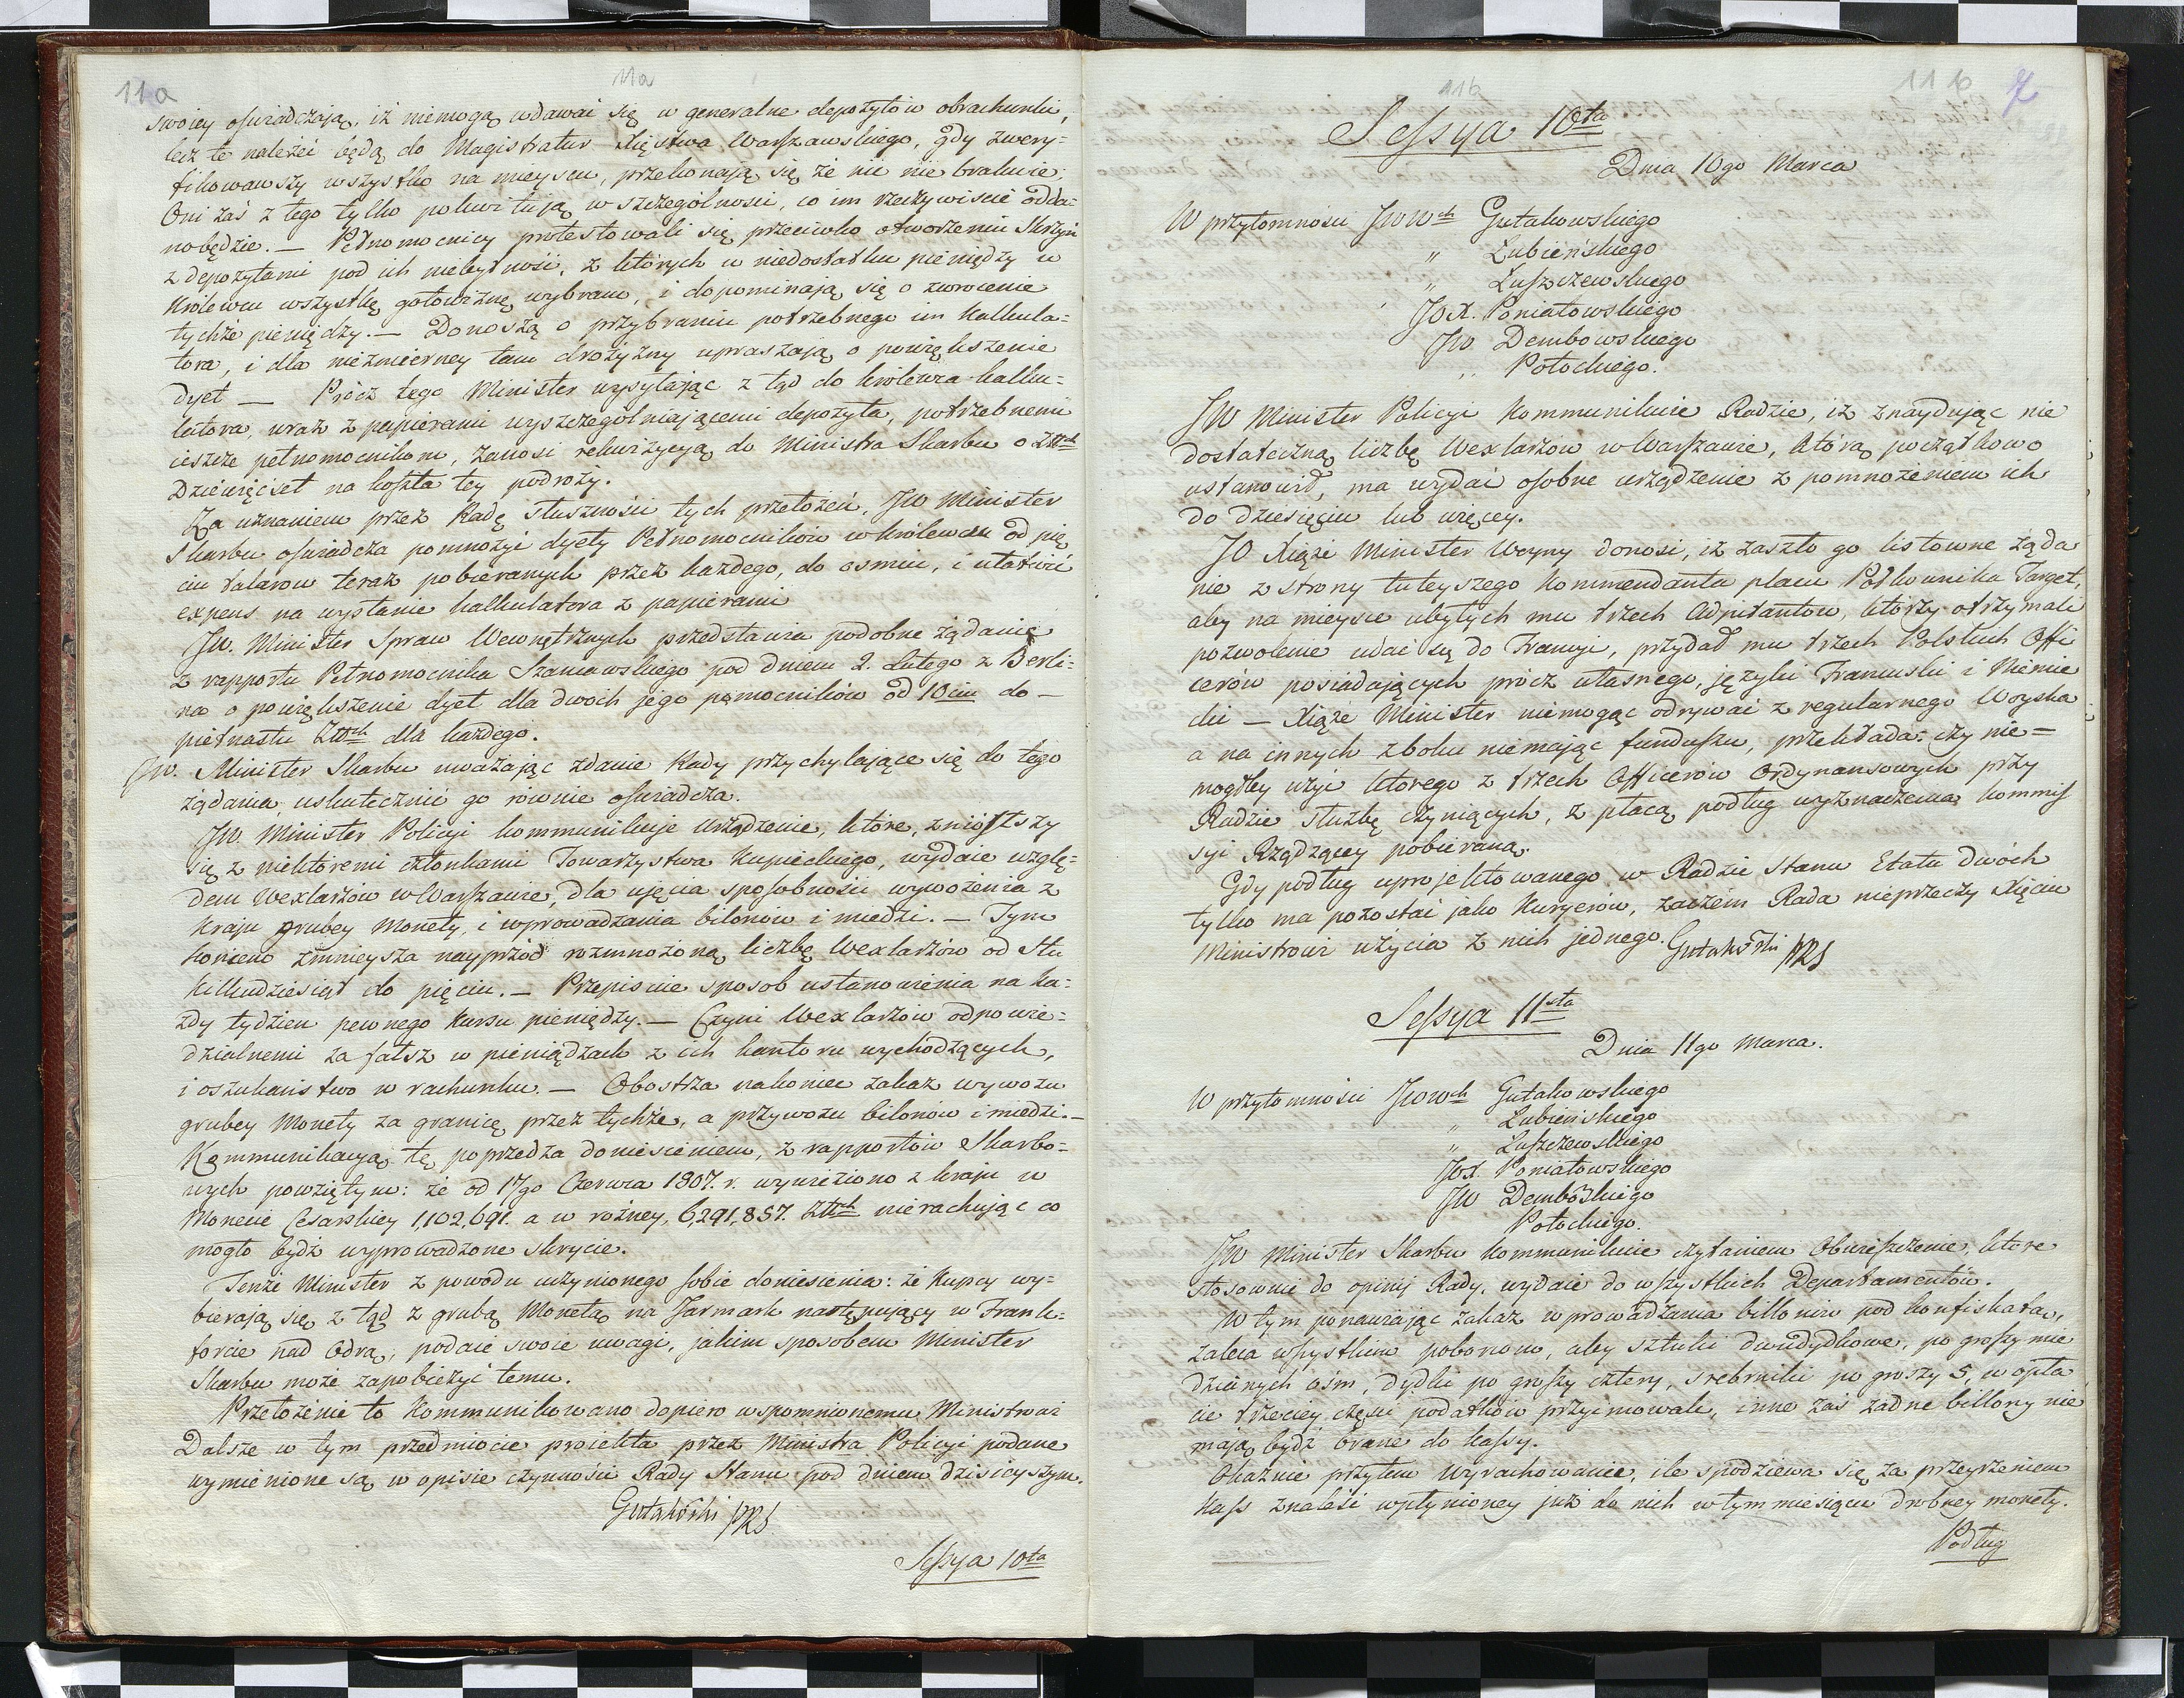 11a
11a
swoiey oświadczają, iż niemogą wdawać się w generalne depozytów obrachunki,
lecz te należeć będą do Magistratur Xięstwa Warszawskiego, gdy zwery-
fikowawszy wszystko na mieyscu, przekonają się że nic nie brakuie;
Oni zaś z tego tylko pokwitują w szczególności, co im rzeczywiście odda-
no będzie. — Pełnomocnicy protestowali się przeciwko otworzeniu Skrzyń
z depozytami pod ich niebytność, z których w niedostatku pieniędzy w
Królewcu wszystkę gotowiznę wybrano, i dopominają się o zwrócenie
tychże pieniędzy. — Donoszą o przybraniu potrzebnego im Kalkula-
tora, i dla niezmierney tam drożyzny upraszają o powiększenie
dyet — Prócz tego Minister wysyłając z tąd do Królewca kalku-
latora, wraz z papierami wyszczególniającemi depozyta, potrzebnemi
ieszcze pełnomocnikom, zanosi rekwizycyą do Ministra Skarbu o Złtch
Dziewięćset na koszta tey podróży.
Za uznaniem przez Radę słuszności tych przełożeń, JW Minister
Skarbu oświadcza pomnożyć dyety Pełnomocników w Królewcu od pię
ciu talarow teraz pobieranych przez każdego, do ośmiu, i ułatwić
expens na wysłanie kalkulatora z papierami
JW. Minister Spraw Wewnętrznych przedstawia podobne żądanie
z rapportu Pełnomocnika Staniawskiego pod dniem 2. Lutego z Berli-
na o powiększenie dyet dla dwóch jego pomocników od 10ciu do —
piętnastu Złtch dla każdego.
JW. Minister Skarbu uważając zdanie Rady przychylające się do tego
żądania uskutecznić go równie oświadcza.
JW. Minister Policyi kommunikuje Urządzenie, które, zniósłszy
się z niektóremi członkami Towarzystwa Kupieckiego, wydaie wzglę-
dem Wexlarzów w Warszawie, dla ujęcia sposobności wywożenia z
kraju grubey Monety, i wprowadzania bilonów i miedzi. — Tym
końcem zmnieysza nayprzód rozmnożoną liczbę Wexlarzów od Stu
kilkudziesiąt do pięciu. — Przepisuie sposob ustanowienia na ka-
żdy tydzien pewnego kursu pieniędzy. — Czyni Wexlarzów odpowie-
dzialnemi za fałsz w pieniądzach z ich kantoru wychodzących,
i oszukaństwo w rachunku. — Obostrza nakoniec zakaz wywozu
grubey Monety za granicę przez tychże, a przywozu bilonów i miedzi. —
Kommunikacyą tę poprzedza doniesieniem, z rapportów Skarbo-
wych powziętym: że od 17go Czerwca 1807. r. wywieziono z kraju w
Monecie Cesarskiey 1,102,691. a w rożney, 6,291,857. Złtch nierachując co
mogło bydź wyprowadzone skrycie.
Tenże Minister z powodu uczynionego sobie doniesienia: że Kupcy wy-
bierają się z tąd z grubą Monetą na Jarmark następujący w Frank-
forcie nad Odrą, podaie swoie uwagi, jakim sposobem Minister
Skarbu może zapobieżyć temu.
Przełożenie to Kommunikowano dopiero wspomnionemu Ministrowi
Dalsze w tym przedmiocie proiekta przez Ministra Policyi podane
wymienione są w opisie czynności Rady Stanu pod dniem dzisieyszym.
Gutakowski PRS
Sessya 10ta
11b
11b
Sessya 10ta
Dnia 10go Marca
W przytomności JWWch Gutakowskiego
" Łubieńskiego
" Łuszczewskiego
JOX. Poniatowskiego
JW Dembowskiego
" Potockiego.
JW Minister Policyi Kommunikuie Radzie, iż znaydując nie
dostateczną liczbę Wexlarzów w Warszawie, którą początkowo
ustanowił, ma wydać osobne urządzenie z pomnożeniem ich
do dziesięciu lub więcey.
JO Xiąże Minister Woyny donosi, iż zaszło go listowne żąda
nie z strony tuteyszego Kommendanta placu Pułkownika Target,
aby na mieysce ubyłych mu trzech Adjutantow, którzy otrzymali
pozwolenie udać się do Francyi, przydał mu trzech Polskich Offi
cerów posiadających prócz własnego, języki Francuski i Niemie
cki — Xiąże Minister niemogąc odrywać z regularnego Woyska
a na innych zboku niemając funduszu, przekłada: czy nie-
mogłby użyć którego z trzech Officerów Ordynansowych przy
Radzie służbę czyniących, z płacą podług wyznaczenia Kommis
syi Rządzącey pobieraną.
Gdy podług uprojektowanego w Radzie Stanu Etatu dwóch
tylko ma pozostać jako Kuryerów, zaczém Rada nieprzeczy Xięciu
Ministrowi użycia z nich jednego. Gutakowski PRS
Sessya 11sta
Dnia 11go Marca.
W przytomności JWWch Gutakowskiego
" Łubieńskiego
" Łuszczewskiego
JOX. Poniatowskiego
JW Dembowskiego
Potockiego.
JW Minister Skarbu Kommunikuie czytaniem Obwieszczenie, które
stosownie do opinij Rady, wydaie do wszystkich Departamentów.
W tym ponawiając zakaz wprowadzania billonów pod konfiskatą,
zaleca wszystkim poborcom, aby sztuki dwudydkowe, po groszy mie
dzianych ośm, dydki po groszy cztery, srebrniki po groszy 5, w opła
cie trzeciey części podatków przyimowali, inne zaś żadne billony nie
mają bydź brane do kassy.
Okaznie przytem wyrachowanie, ile spodziewa się za przeyrzeniem
Kass znaleść wpłynioney już do nich w tym miesiącu drobney monety.
Podług